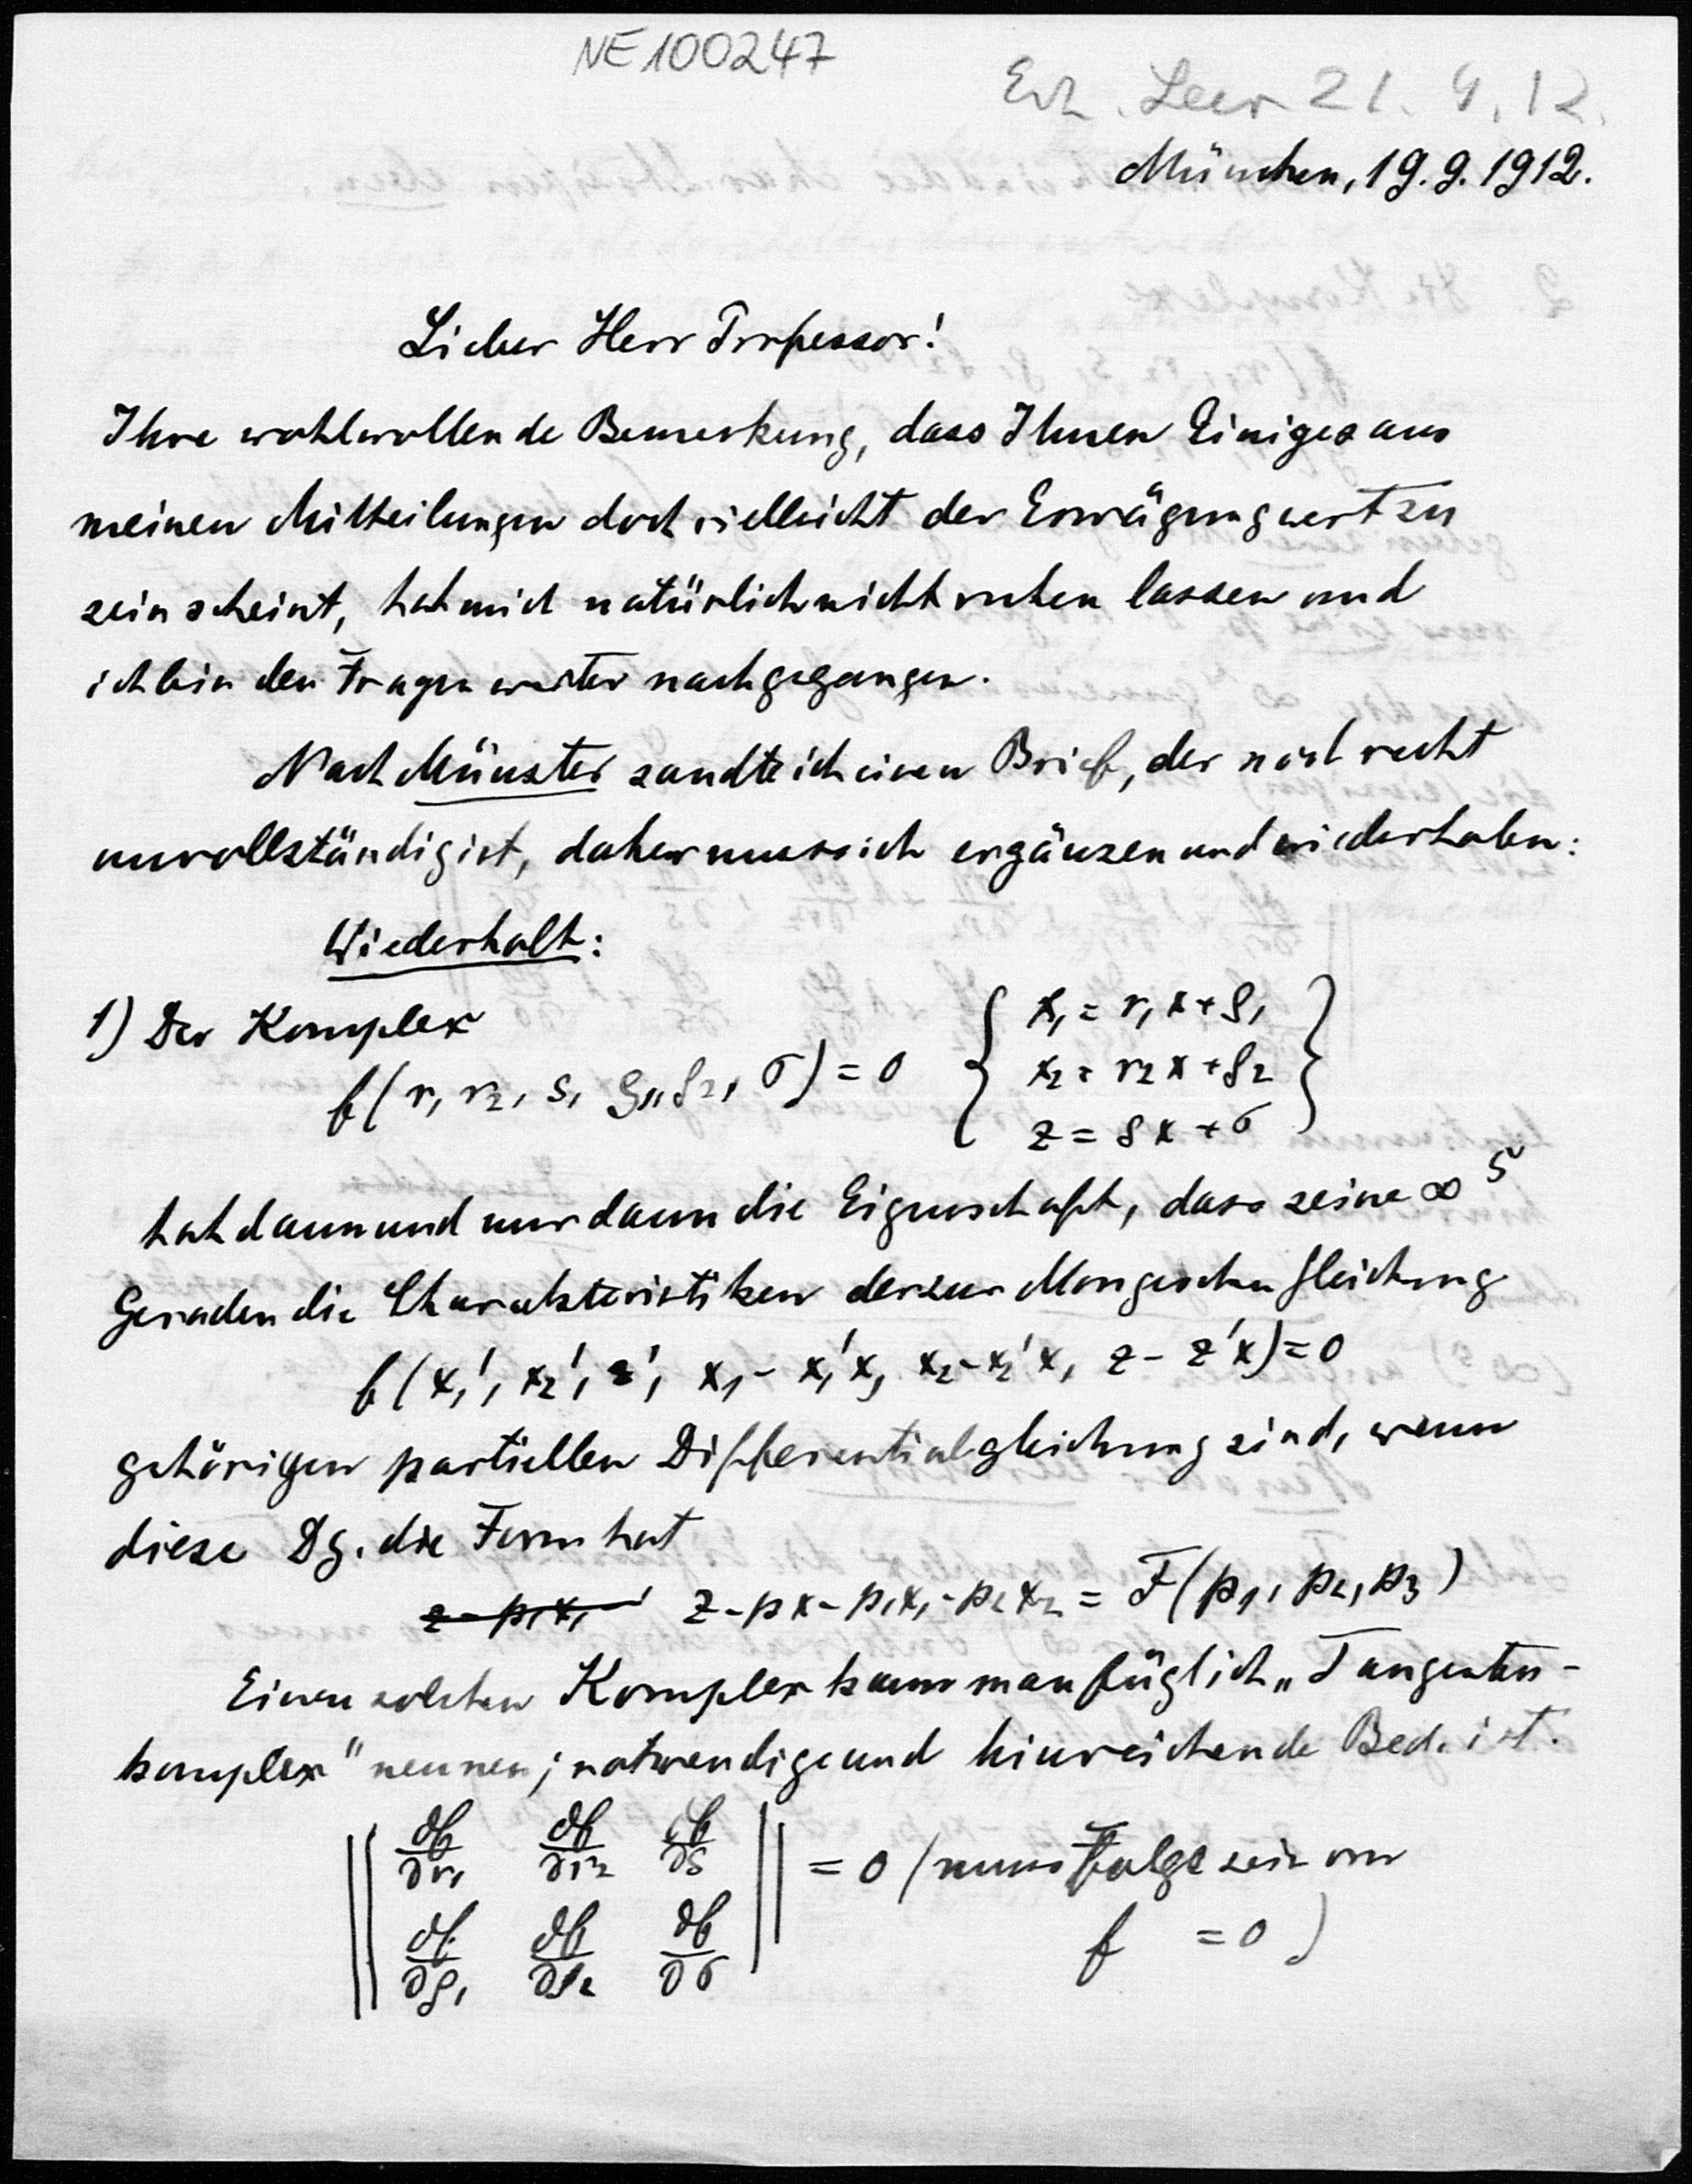 NE100247
Erh. Leer 21. 9. 12.
München, 19.9.1912.
Lieber Herr Professor!
Ihre wohlwollende Bemerkung, dass Ihnen Einiges aus
meinen Mitteilungen doch vielleicht der Erwägung wert zu
sein scheint, hat mich natürlich nicht ruhen lassen und
ich bin den Fragen weiter nachgegangen.
Nach Münster sandte ich einen Brief, der noch recht
unvollständig ist, daher muss ich ergänzen und wiederholen:
Wiederholt:
1) Der Komplex
f(r₁ r₂, s, ρ₁, ρ₂, σ) = 0 { x₁ = r₁x + ρ₁
x₂ = r₂x + ρ₂
z = sx + σ }
hat dann und nur dann die Eigenschaft, dass seine ∞⁵
Geraden die Charakteristiken der zur Mongeschen Gleichung
f(x₁', x₂', z', x₁ - x₁'x, x₂ - x₂'x, z - z'x) = 0
gehörigen partiellen Differentialgleichung sind, wenn
diese Dg. die Form hat
z - p₁x₁ - z - px - p₁x₁ - p₂x₂ = F(p₁, p₂, p₃)
Einen solchen Komplex kann man füglich „Tangenten-
komplex" nennen; notwendige und hinreichende Bed. ist.
|| ∂f/∂r₁ ∂f/∂r₂ ∂f/∂s
∂f/∂ρ₁ ∂f/∂ρ₂ ∂f/∂σ || = 0 (muss Folge sein von
f = 0)